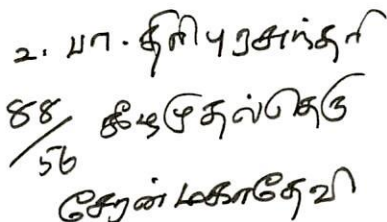 2. பா. திரிபுரசுந்தரி
88/56 கீழமுதல்தெரு
சேரன்மகாதேவி